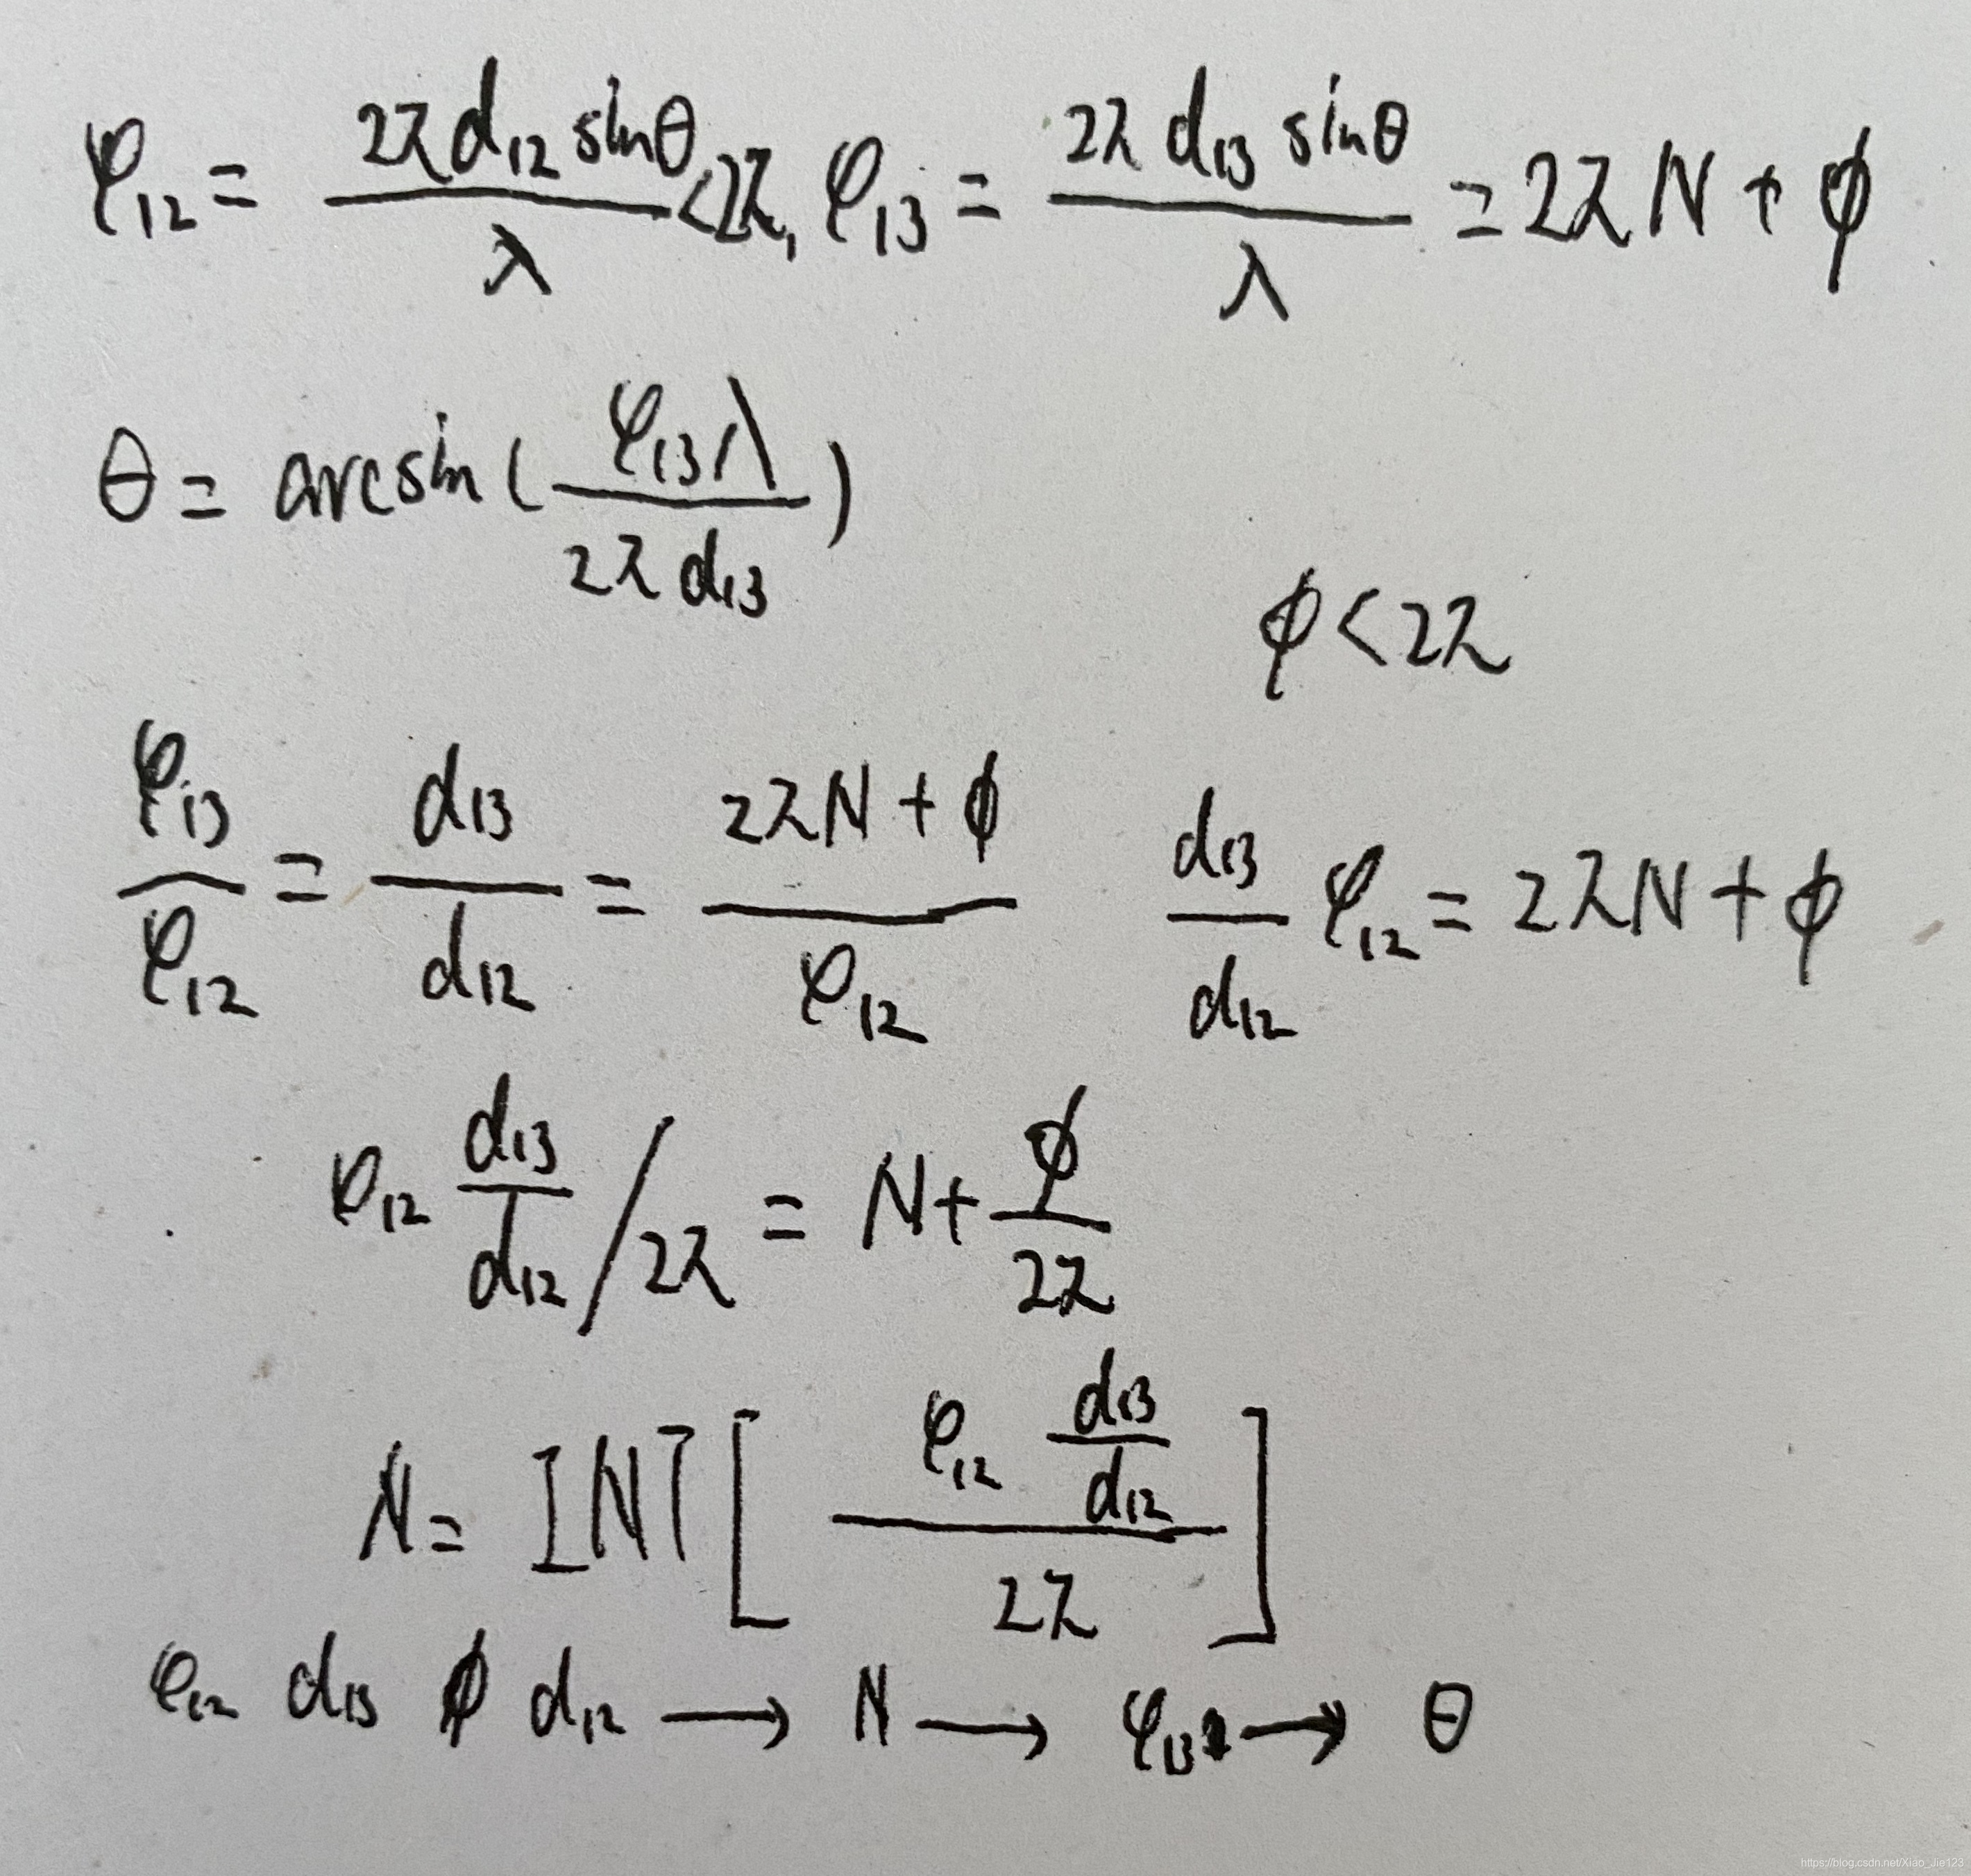 φ₁₂ = 2π d₁₂ sinθ / λ < 2π, φ₁₃ = 2π d₁₃ sinθ / λ = 2π N + ϕ
θ = arcsin ( φ₁₃ λ / 2π d₁₃ )
ϕ < 2π
φ₁₃ / φ₁₂ = d₁₃ / d₁₂ = 2π N + ϕ / φ₁₂    d₁₃ / d₁₂ φ₁₂ = 2π N + ϕ
φ₁₂ d₁₃ / d₁₂ / 2π = N + ϕ / 2π
N = INT [ φ₁₂ d₁₃ / d₁₂ / 2π ]
φ₁₂ d₁₃ ϕ d₁₂ → N → φ₁₃ → θ
https://blog.csdn.net/Xiao_Jie123